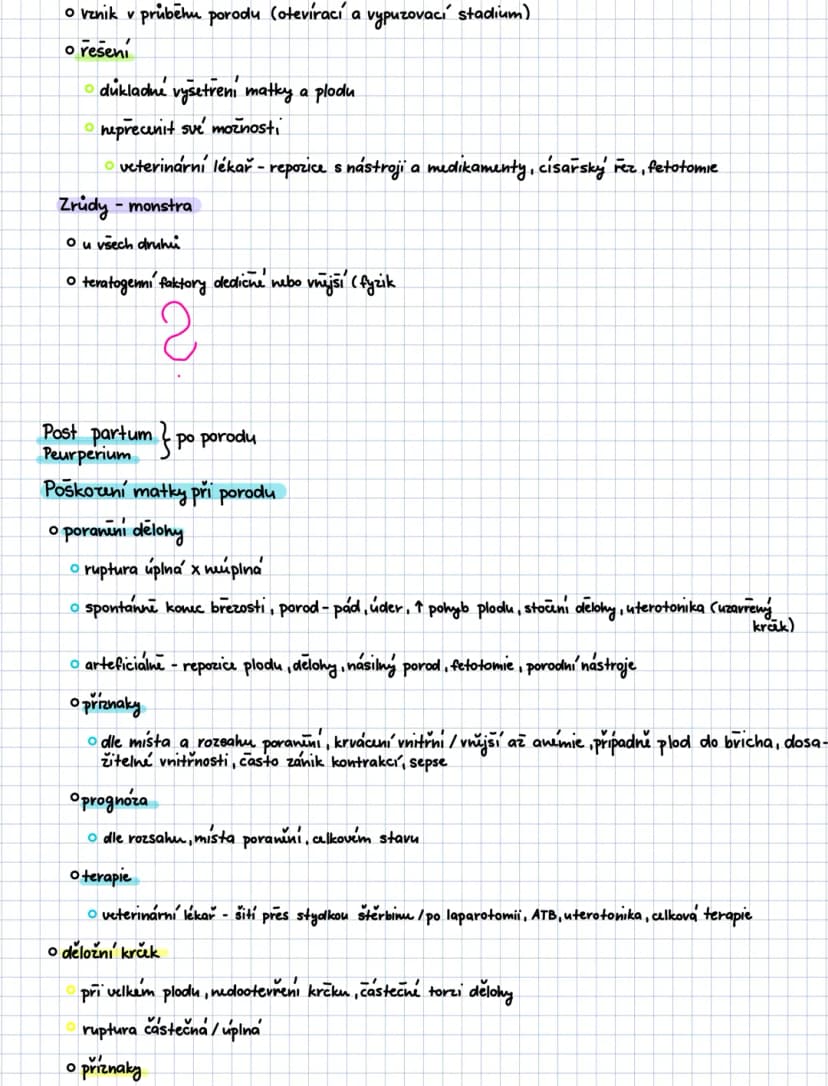 o vznik v průběhu porodu (otevírací a vypuzovací stadium)
o řešení
o důkladné vyšetření matky a plodu
o nepřecenit své možnosti
o veterinární lékař - repozice s nástroji a medikamenty, císařský řez, fetotomie
Zrůdy - monstra
o u všech druhů
o teratogenní faktory dedičné nebo vnější (fyzik
?
Post partum } po porodu
Peurperium
Poškození matky při porodu
o poranění dělohy
o ruptura úplná x neúplná
o spontánně konec březosti, porod - pád, úder, ↑ pohyb plodu, stočení dělohy, uterotonika (uzavřený
krček)
o arteficiálně - repozice plodu, dělohy, násilný porod, fetotomie, porodní nástroje
o příznaky
o dle místa a rozsahu poranění, krvácení vnitřní / vnější až anémie, případně plod do břicha, dosa-
žitelné vnitřnosti, často zánik kontrakcí, sepse
o prognóza
o dle rozsahu, místa poranění, celkovém stavu
o terapie
o veterinární lékař - šití přes stydkou štěrbinu / po laparotomii, ATB, uterotonika, celková terapie
o děložní krček
o při velkém plodu, nedootevření krčku, částečné torzi dělohy
o ruptura částečná / úplná
o příznaky